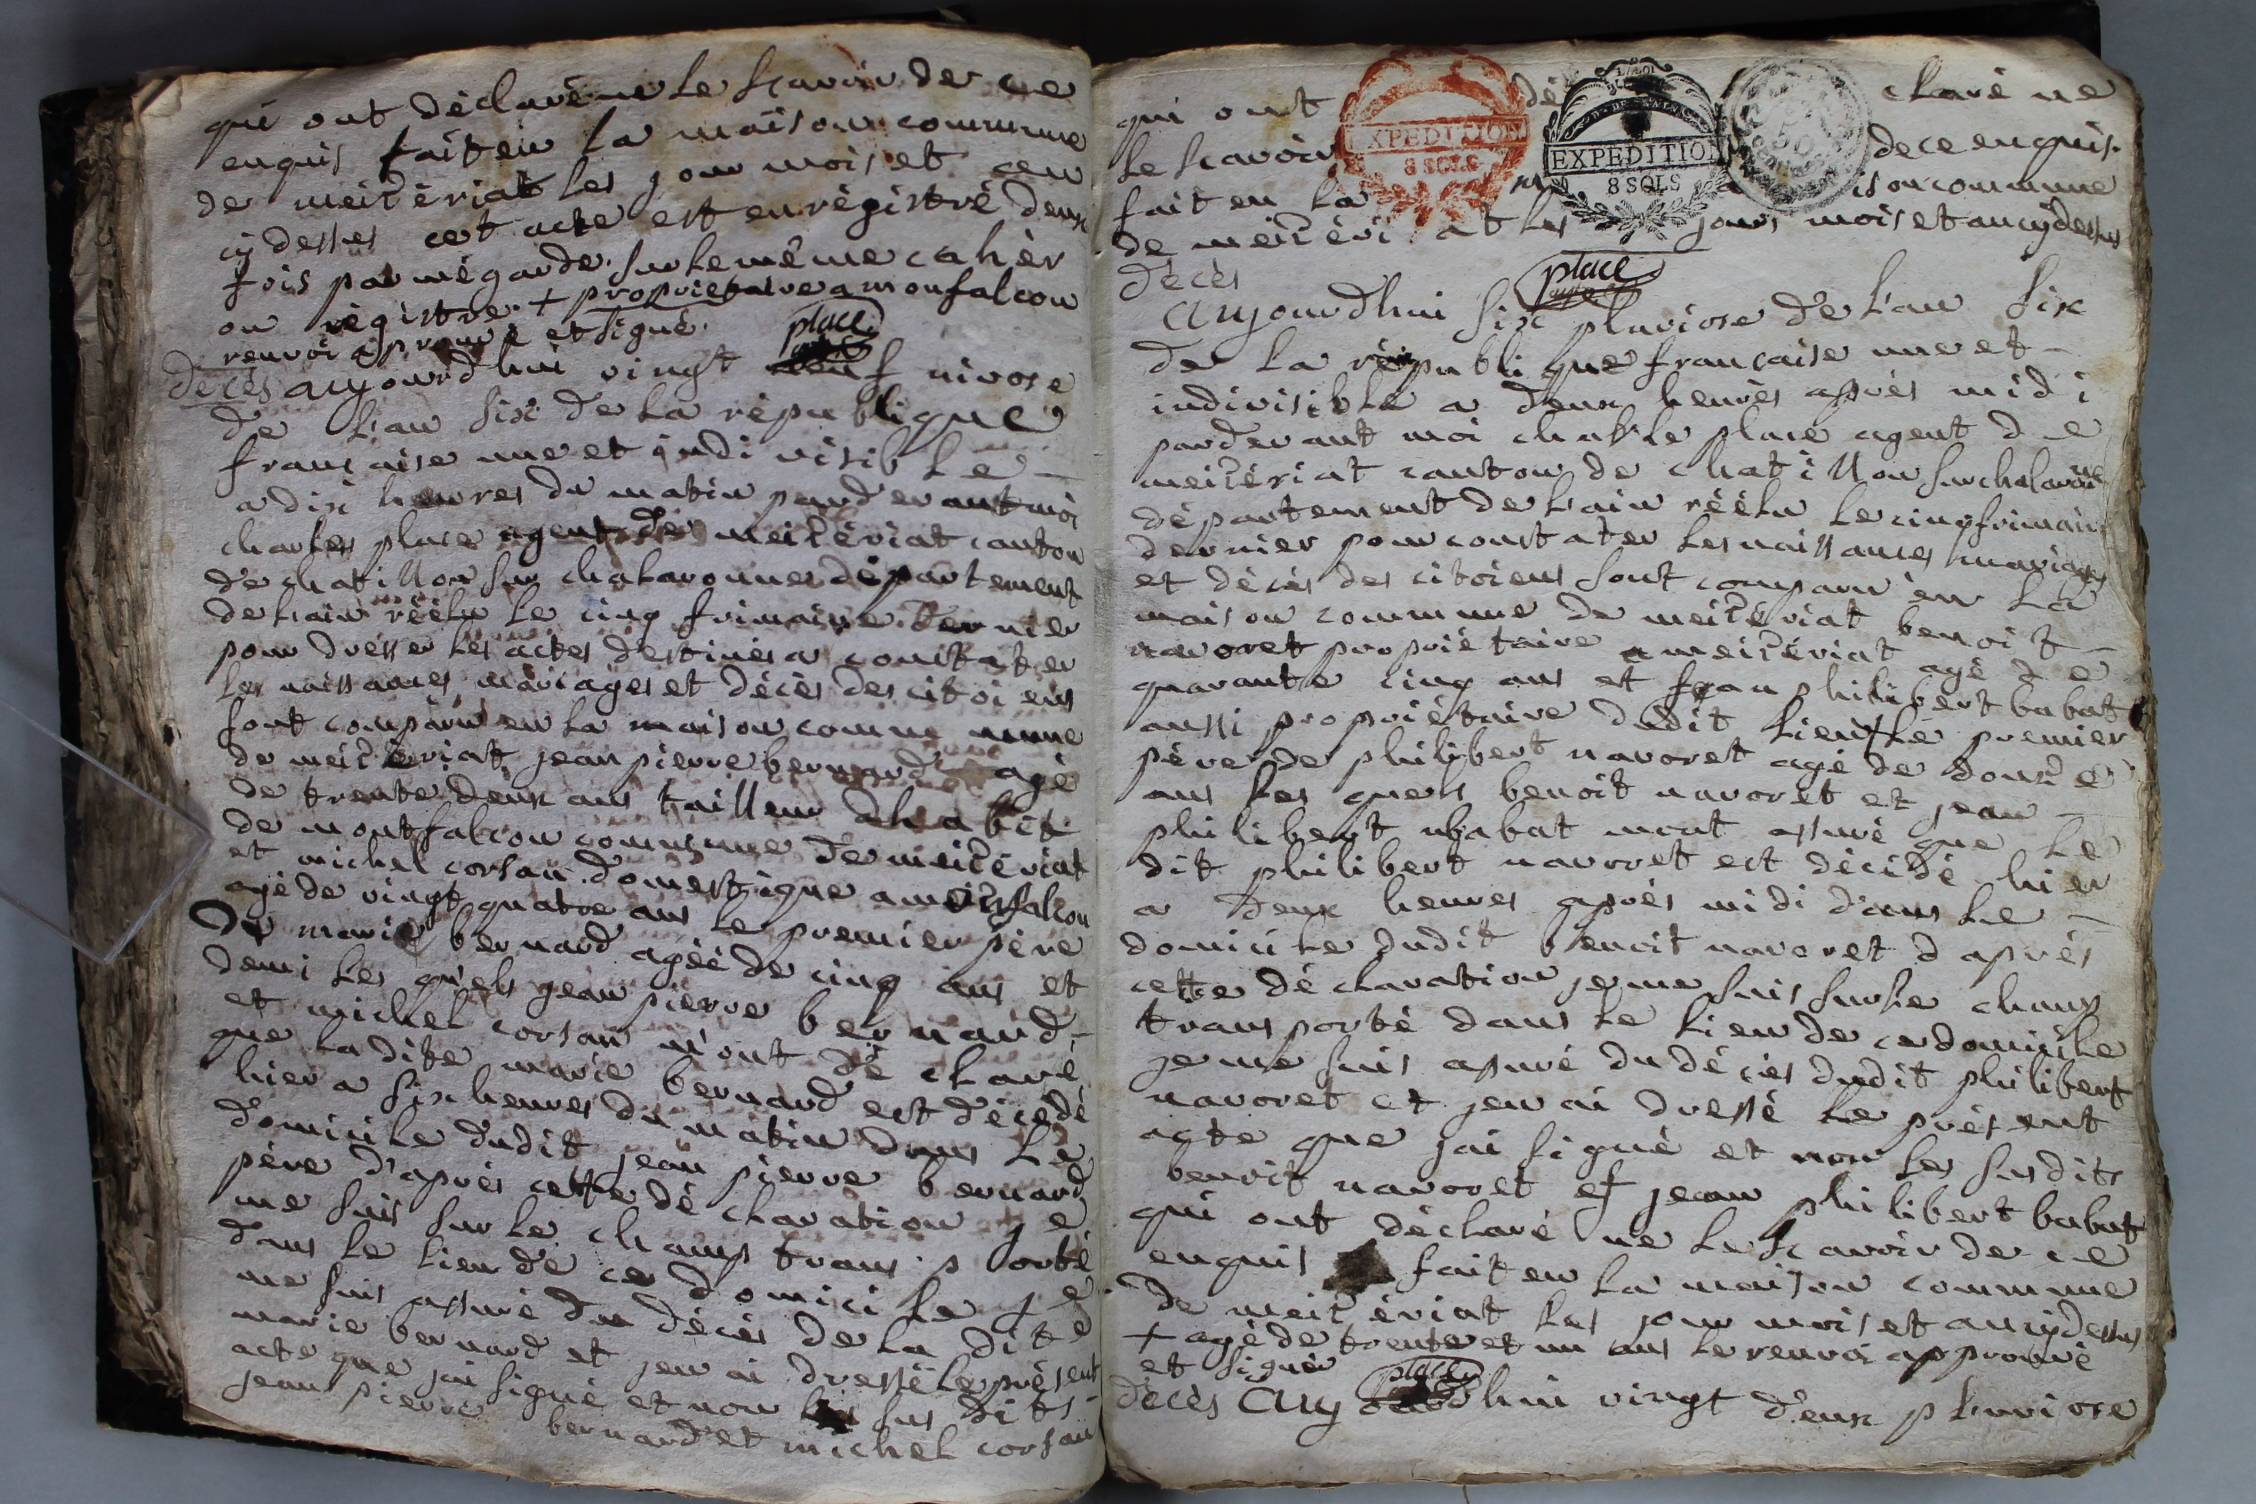 qui ont déclaré ne le scavoir de ce
enquis fait en la maison commune
de meizériat les jour mois et an
cy dessus cet acte est enrégistré deux
fois par mégarde sur le même cahér
ou régistre + propriétaire a monfalcon
renvoi approuvé et signé. place
décès aujourd'hui vingt neuf nivose
de l'an six de la république
française une et indivisible
a dix heures du matin pardevant moi
charles place agent de meizériat canton
de chatillon sur chalaronne département
de l'ain réélu le cinq frimaire dernier
pour dresser les actes destinés a constater
les naissances mariages et décès des citoiens
sont comparu en la maison commune
de meizériat jean pierre bernard agé
de trente deux ans tailleur d'habits
de montfalcon commune de meizériat
et michel corsain domestique a montfalcon
agé de vingt quatre ans le premier père
de marie bernard agéé de cinq ans et
demi les quels jean pierre bernard
et michel corsain m'ont déclaré
que la dite marie bernard est décédé
hier a six heures du matin dans le
domicile dudit jean pierre bernard
père d'après cette déclaration je
me suis sur le champ transporté
dans le lieu de ce domicile je
me suis assuré du décès de la dite
marie bernard et jen ai dressé le présent
acte que jai signé et non les sus dits
jean pierre bernard et michel corsain
qui ont déclaré ne
le scavoir de ce enquis.
fait en la maison commune
de meizériat les jours mois et an cydessus
décès place
EXPEDITION
8 SOLS
EXPEDITION
8 SOLS
Aujourd'hui six pluviose de l'an six
de la république française une et
indivisible a deux heures après midi
pardevant moi charle place agent de
meizériat canton de chatillon sur chalaronne
département de l'ain réélu le cinq frimaire
dernier pour constater les naissances mariages
et décès des citoiens sont comparu en la
maison commune de meizériat benoit
navoret propriétaire a meizériat agé de
quarante cinq ans et jean philibert babat
aussi propriétaire dudit lieu + le premier
père de philibert navoret agé de douze
ans les quels benoit navoret et jean
philibert babat mont assuré que le
dit philibert navoret est décédé hier
a deux heures après midi dans le
domicile dudit benoit navoret d'après
cette déclaration je me suis sur le champ
transporté dans le lieu de ce domicile
je me suis assuré du décès dudit philibert
navoret et jen ai dressé le présent
acte que jai signé et non les susdits
benoit navoret et jean philibert babat
qui ont déclaré ne le scavoir de ce
enquis fait en la maison commune
de meizériat les jour mois et an cydessus
+ agé de trente et un ans le renvoi approuvé
et signé place
décès Aujourdhui vingt deux pluviose